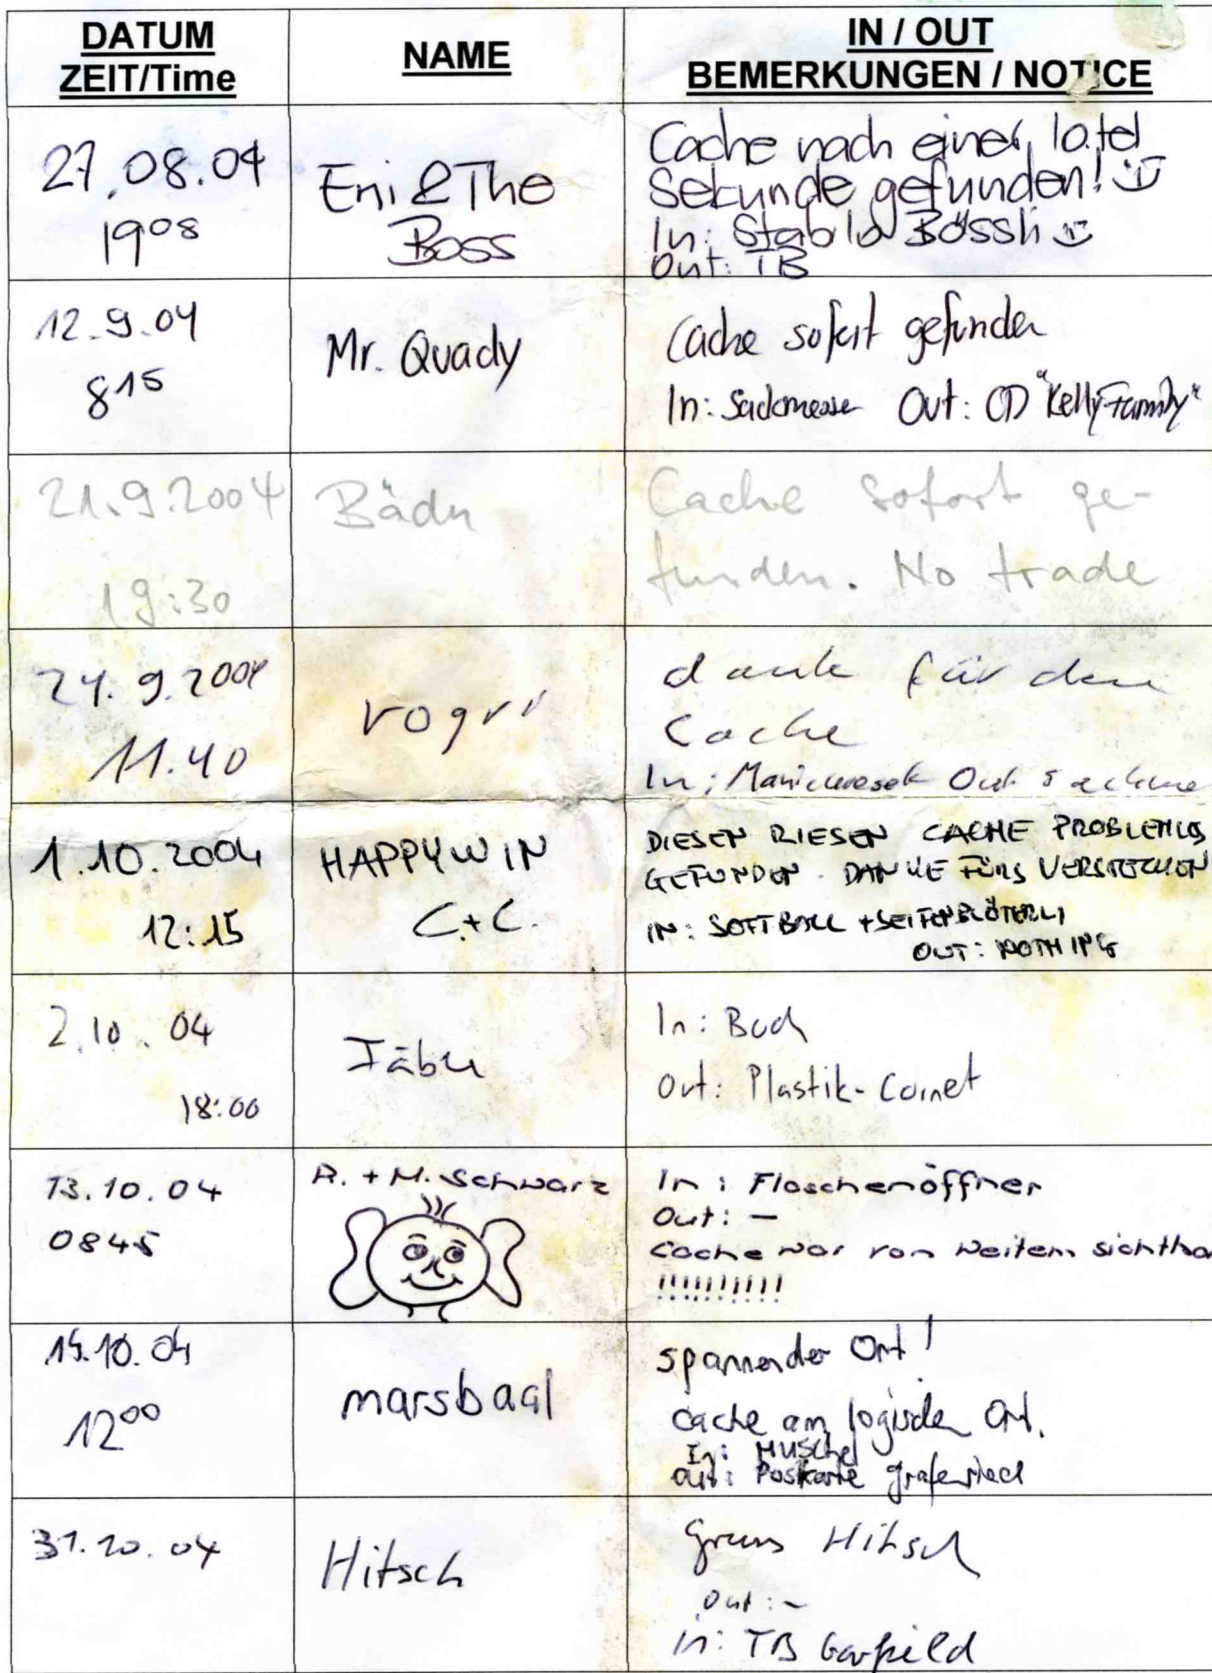 DATUM
ZEIT/Time
NAME
IN / OUT
BEMERKUNGEN / NOTICE
27.08.04
1908
Eni & The
Boss
Cache nach einer
Sekunde gefunden!
In: Stabilo Bössli
Out: TB
12.9.04
815
Mr. Quady
Cache sofort gefunden
In: Sackmesser Out: CD "Kelly Family"
21.9.2004
19:30
Bädu
Cache sofort ge-
funden. No trade
24.9.2004
11.40
rogri
danke für den
Cache
In: Out
1.10.2004
12:15
HAPPYWIN
C.+C.
DIESEN RIESEN CACHE PROBLEMLOS
GEFUNDEN. DANKE FÜRS VERSTECKEN
IN: SOFTBALL + SEIFENBLÖTERLI
OUT: NOTHING
2.10.04
18:00
Jäbu
In: Buch
Out: Plastik-Cornet
13.10.04
0845
R. + M. Schwarz
In: Flaschenöffner
Out: —
Cache war von Weitem sichtba
!!!!!!!!!!
1200
marsbaal
spannender Ort!
cache am logischen Ort.
In: Muschel
Out: Postkarte
31.10.04
Hitsch
Gruss Hitsch
Out: –
In: TB Garfield